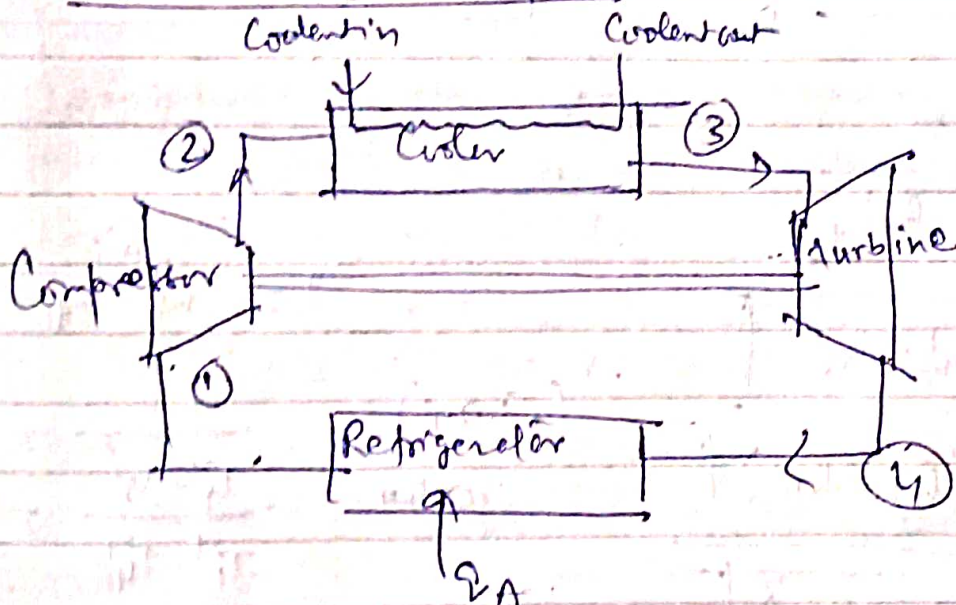 Coolentin Coolentout
② Cooler ③
Compressor turbine
①
Refrigerator
④
QA